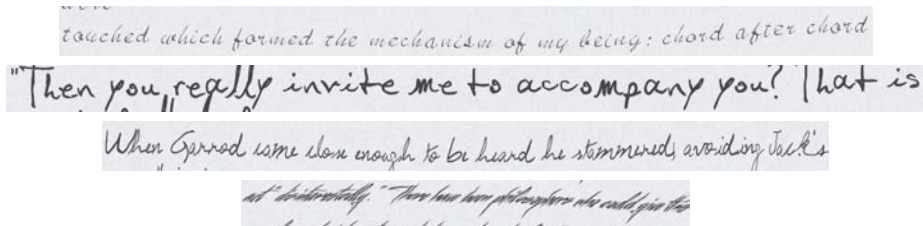 touched which formed the mechanism of my being: chord after chord
"Then you really invite me to accompany you? That is
When Garrod came close enough to be heard he stammered, avoiding Jack's
act "disinterestedly." There have been philosophers who could give this